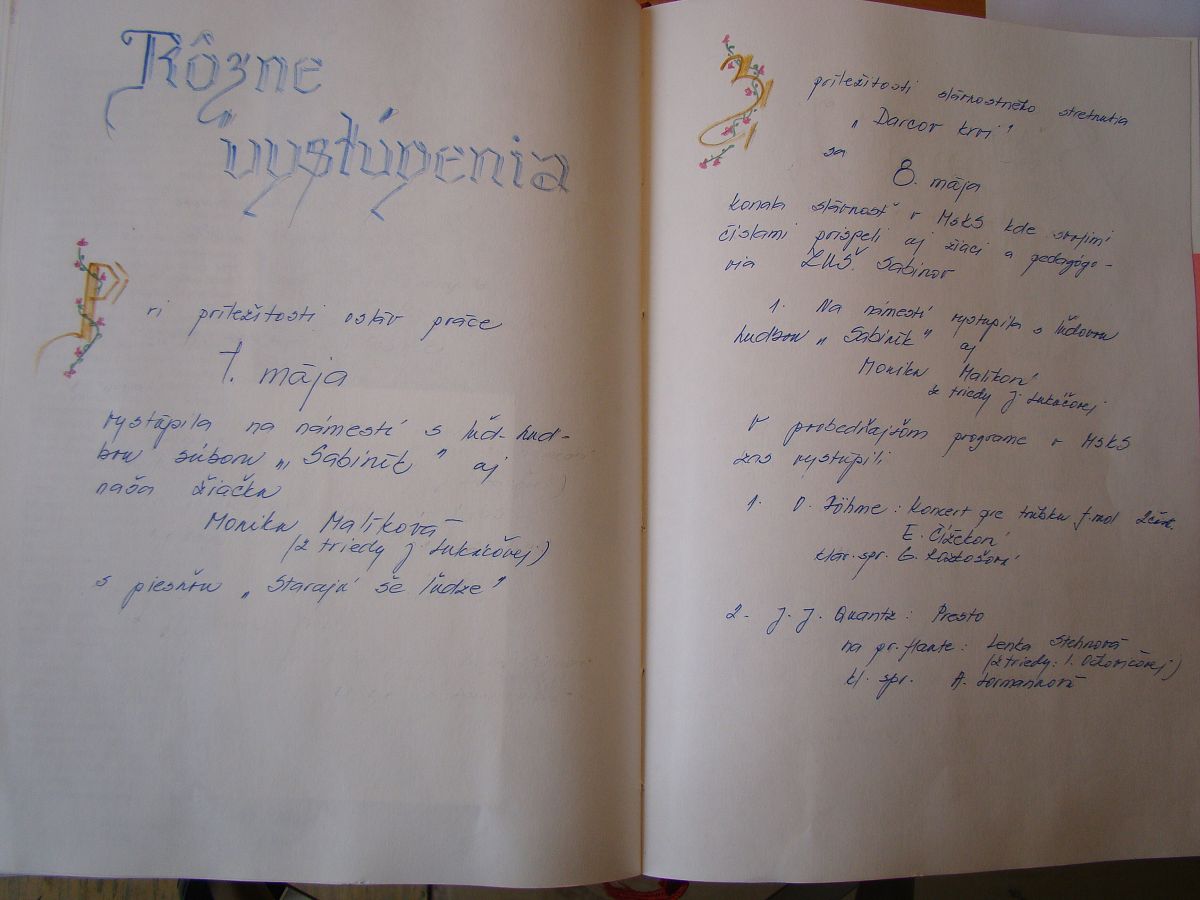 Rôzne
vystúpenia
Pri príležitosti osláv práce
1. mája
vystúpila na námestí s ľud. hud-
bou súboru „Sabiník" aj
naša žiačka
Monika Malíková
(z triedy J. Lukáčovej)
s piesňou „Starajú še ľudze"
Z príležitosti slávnostného stretnutia
„Darcov krvi"
sa
8. mája
konala slávnosť v MsKS kde svojimi
číslami prispeli aj žiaci a pedagógo-
via ZUŠ. Sabinov
1. Na námestí vystúpila s ľudovou
hudbou „Sabiník" aj
Monika Malíková
z triedy J. Lukáčovej
V probedňajšom programe v MsKS
zas vystúpili
1. O. Böhme: Koncert pre trúbku f mol 2.časť.
E. Čížeková
klav. spr. G.
2. J. J. Quantz: Presto
na pr. flaute: Lenka Stehnová
(z triedy: I.
kl. spr. A.